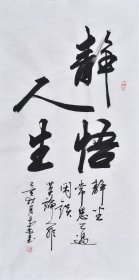 静悟
人生
静坐
常思己过
闲谈
莫论人非